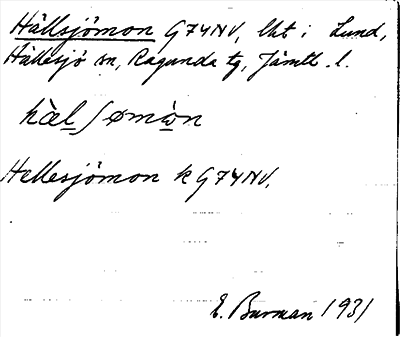 Hällsjömon G74NV, lht i Lund,
Hällesjö sn, Ragunda tg, Jämtl. l.
hæ̀lʃømòn
Hellesjömon k G74NV.
E. Burman 1931